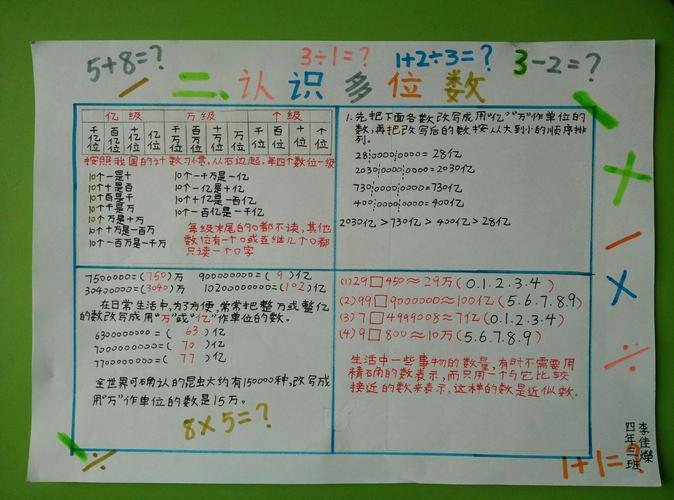 5+8=?
3÷1=?
1+2÷3=?
3-2=?
二、认识多位数
亿级 万级 个级
千亿位 百亿位 十亿位 亿位 千万位 百万位 十万位 万位 千位 百位 十位 个位
按照我国的计数习惯,从右边起,每四个数位一级
10个一是十 10个一千万是一亿
10个十是百 10个一亿是十亿
10个百是千 10个十亿是一百亿
10个千是万 10个一百亿是一千亿
10个万是十万
10个十万是一百万
10个一百万是一千万
每级末尾的0都不读,其他
数位有一个0或连继几个0都
只读一个0字
1.先把下面各数改写成用“亿”“万”作单位的
数,再把改写后的数按从大到小的顺序排
列。
28¦0000¦0000=28亿
2030¦0000¦0000=2030亿
730¦0000¦0000=730亿
400¦0000¦0000=400亿
2030亿>730亿>400亿>28亿
7500000=(750)万 900000000=(9)亿
30400000=(3040)万 10200000000=(102)亿
在日常生活中,为了方便,常常把整万或整亿
的数改写成用“万”或“亿”作单位的数。
6300000000=(63)亿
7000000000=(70)亿
7700000000=(77)亿
全世界可确认的昆虫大约有150000种,改写成
用“万”作单位的数是15万。
8×5=?
(1)29□450≈29万(0.1.2.3.4)
(2)99□9000000≈100亿(5.6.7.8.9)
(3)7□4999008≈7亿(0.1.2.3.4)
(4)9□800≈10万(5.6.7.8.9)
生活中一些事物的数量,有时不需要用
精确的数表示,而只用一个与它比较
接近的数来表示,这样的数是近似数。
1+1=?
四年三班
李佳燦